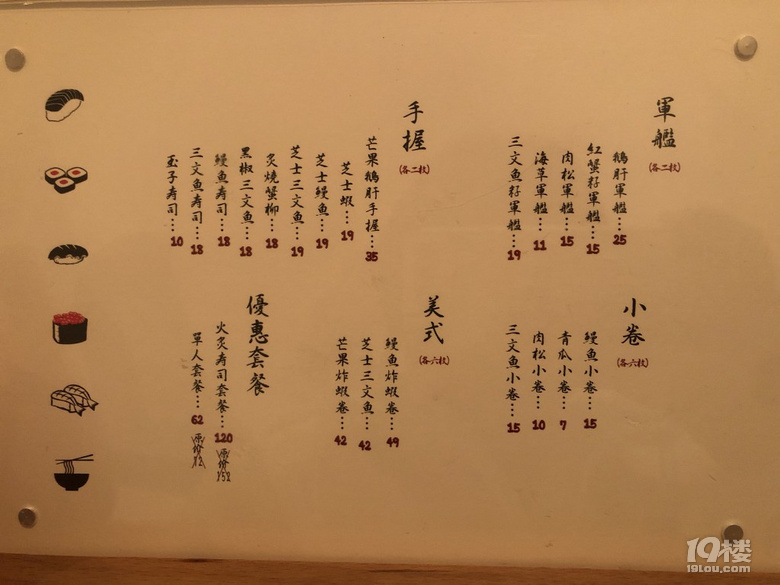 軍艦
(各二枚)
鵝肝軍艦…25
紅蟹籽軍艦…15
肉松軍艦…15
海草軍艦…11
三文魚籽軍艦…19
手握
(各二枚)
芒果鵝肝手握…35
芝士蝦…19
芝士鰻魚…19
芝士三文魚…19
炙燒蟹柳…18
黑椒三文魚…18
鰻魚寿司…18
三文魚寿司…18
玉子寿司…10
小卷
(各六枚)
鰻魚小卷…15
青瓜小卷…7
肉松小卷…10
三文魚小卷…15
美式
(各六枚)
鰻魚炸蝦卷…49
芝士三文魚…42
芒果炸蝦卷…42
優惠套餐
火炙寿司套餐…120
原價152
單人套餐…62
原價72
19楼
19lou.com